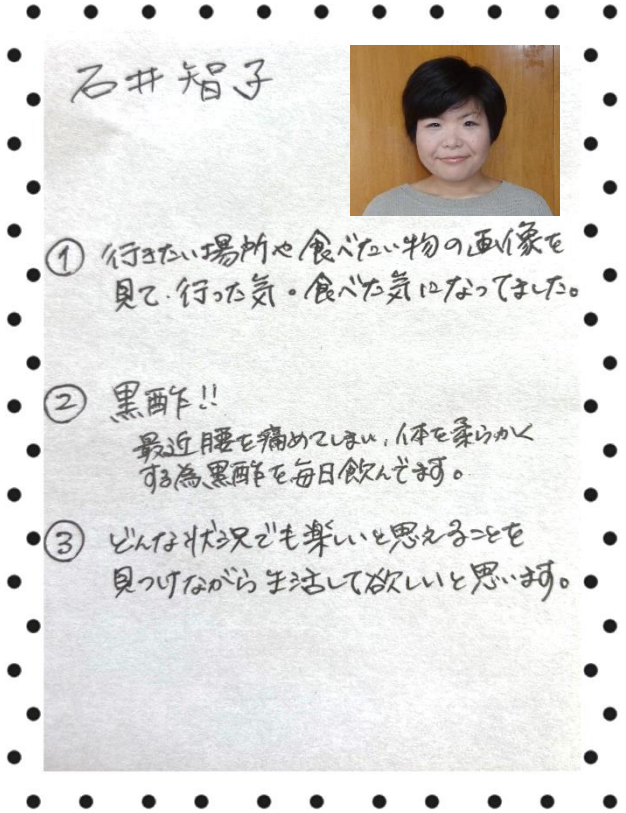 石井智子
① 行きたい場所や食べたい物の画像を
見て、行った気。食べた気になってました。
② 黒酢!!
最近腰を痛めてしまい、体を柔らかく
する為、黒酢を毎日飲んでます。
③ どんな状況でも楽しいと思えることを
見つけながら生活して欲しいと思います。